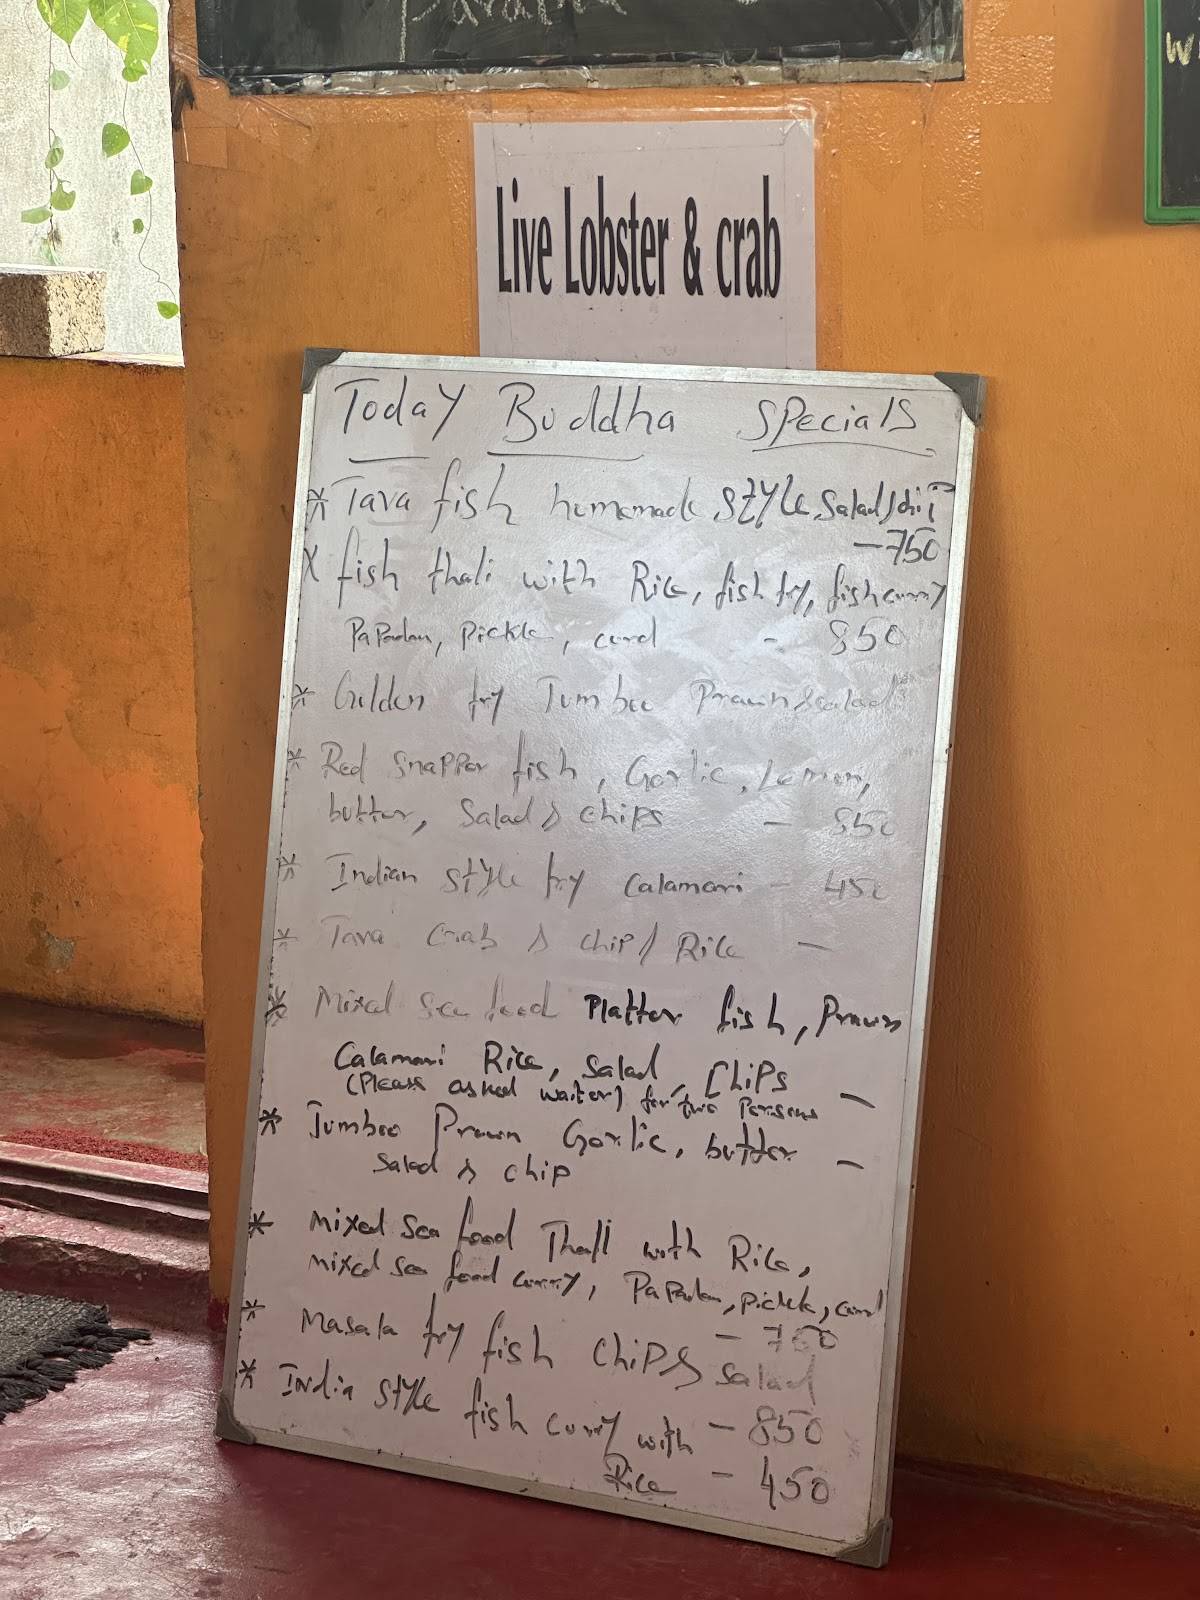 Live Lobster & crab
Today Buddha Specials
* Tava fish homemade style salad, chi
- 750
* fish thali with Rice, fish fry, fish curry
Papadam, Pickle, curd - 850
* Golden fry Jumboo Prawn & salad
* Red Snapper fish, Garlic, Lemon,
butter, Salad & chips - 850
* Indian style fry Calamari - 450
* Tava Crab & chip / Rice -
* Mixed Sea food Platter fish, Prawn
Calamari Rice, Salad, Chips -
(Please asked waiter) for two Persons
* Jumboo Prawn Garlic, butter -
Salad & chip
* Mixed Sea food Thali with Rice,
mixed sea food curry, Papadam, pickle, curd
- 750
* Masala fry fish Chips & Salad
- 850
* India style fish curry with
Rice - 450